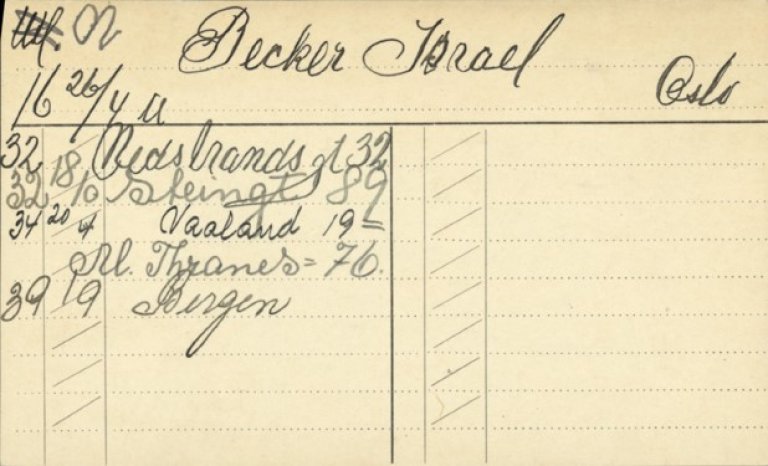 N Becker Israel
Oslo
16 26/4 u
32 Nedstrandsgt 32
32 18/10 Steingt 89
34 20/4 Vaaland 19 =
M. Thranes = 76.
39 1/9 Bergen